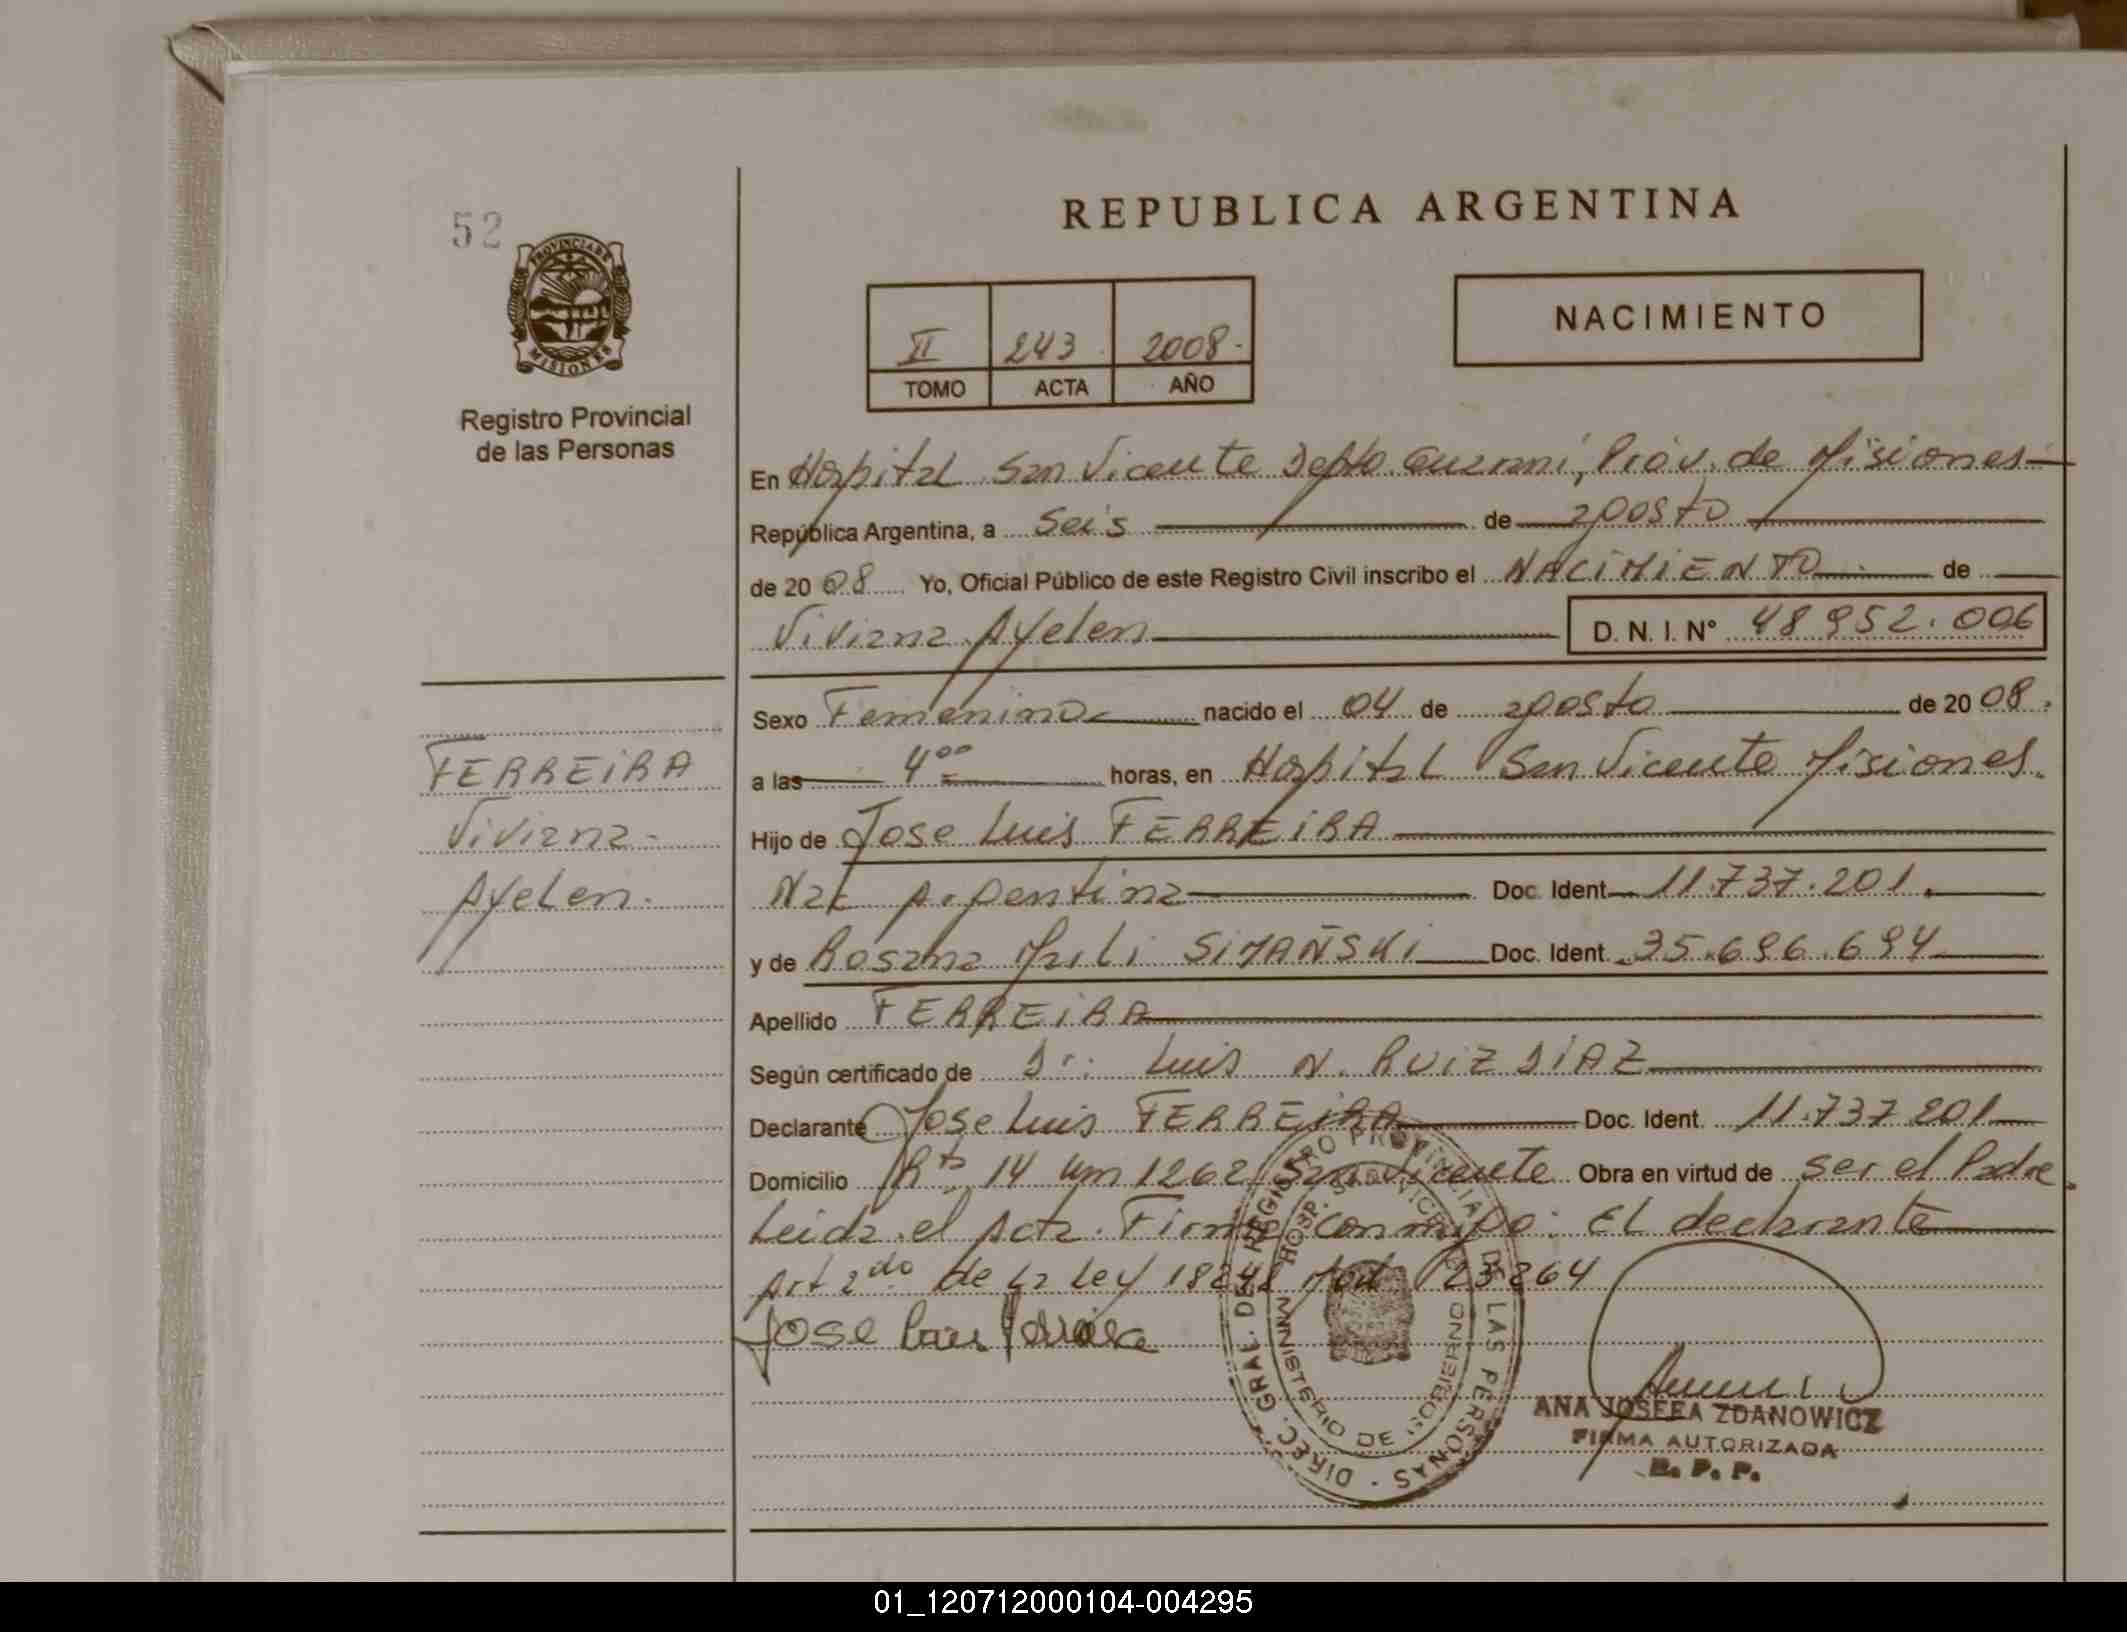 52
PROVINCIA DE
MISIONES
Registro Provincial
de las Personas
REPUBLICA ARGENTINA
II 243 2008.
TOMO ACTA AÑO
NACIMIENTO
En Hospital San Vicente Depto Guarani, Prov. de Misiones
República Argentina, a Seis de agosto
de 20 08 Yo, Oficial Público de este Registro Civil inscribo el NACIMIENTO de
Viviana Ayelen D. N. I. Nº 48 952.006
Sexo Femenino nacido el 04 de agosto de 20 08.
a las 4°° horas, en Hospital San Vicente Misiones.
Hijo de Jose Luis FERREIRA
Nac Argentina Doc. Ident. 11.737.201.
y de Rosana Marli SIMAÑSKI Doc. Ident. 35.696.694
Apellido FERREIRA
Según certificado de Dr. Luis N. RUIZ DIAZ
Declarante Jose Luis FERREIRA Doc. Ident. 11.737 201
Domicilio Rta 14 Km 1262 San Vicente Obra en virtud de ser el Padre
Leida el Acta. Firma conmigo: EL declarante
Art 2do de la Ley 18248 Mod. 23264
Jose Luis Ferreira
FERREIRA
Viviana
Ayelen.
DIREC. GRAL. DE REGISTRO PROVINCIAL DE LAS PERSONAS
HOSP. SAN VICENTE
MINISTERIO DE GOBIERNO
ANA JOSEFA ZDANOWICZ
FIRMA AUTORIZADA
R. P. P.
01_120712000104-004295